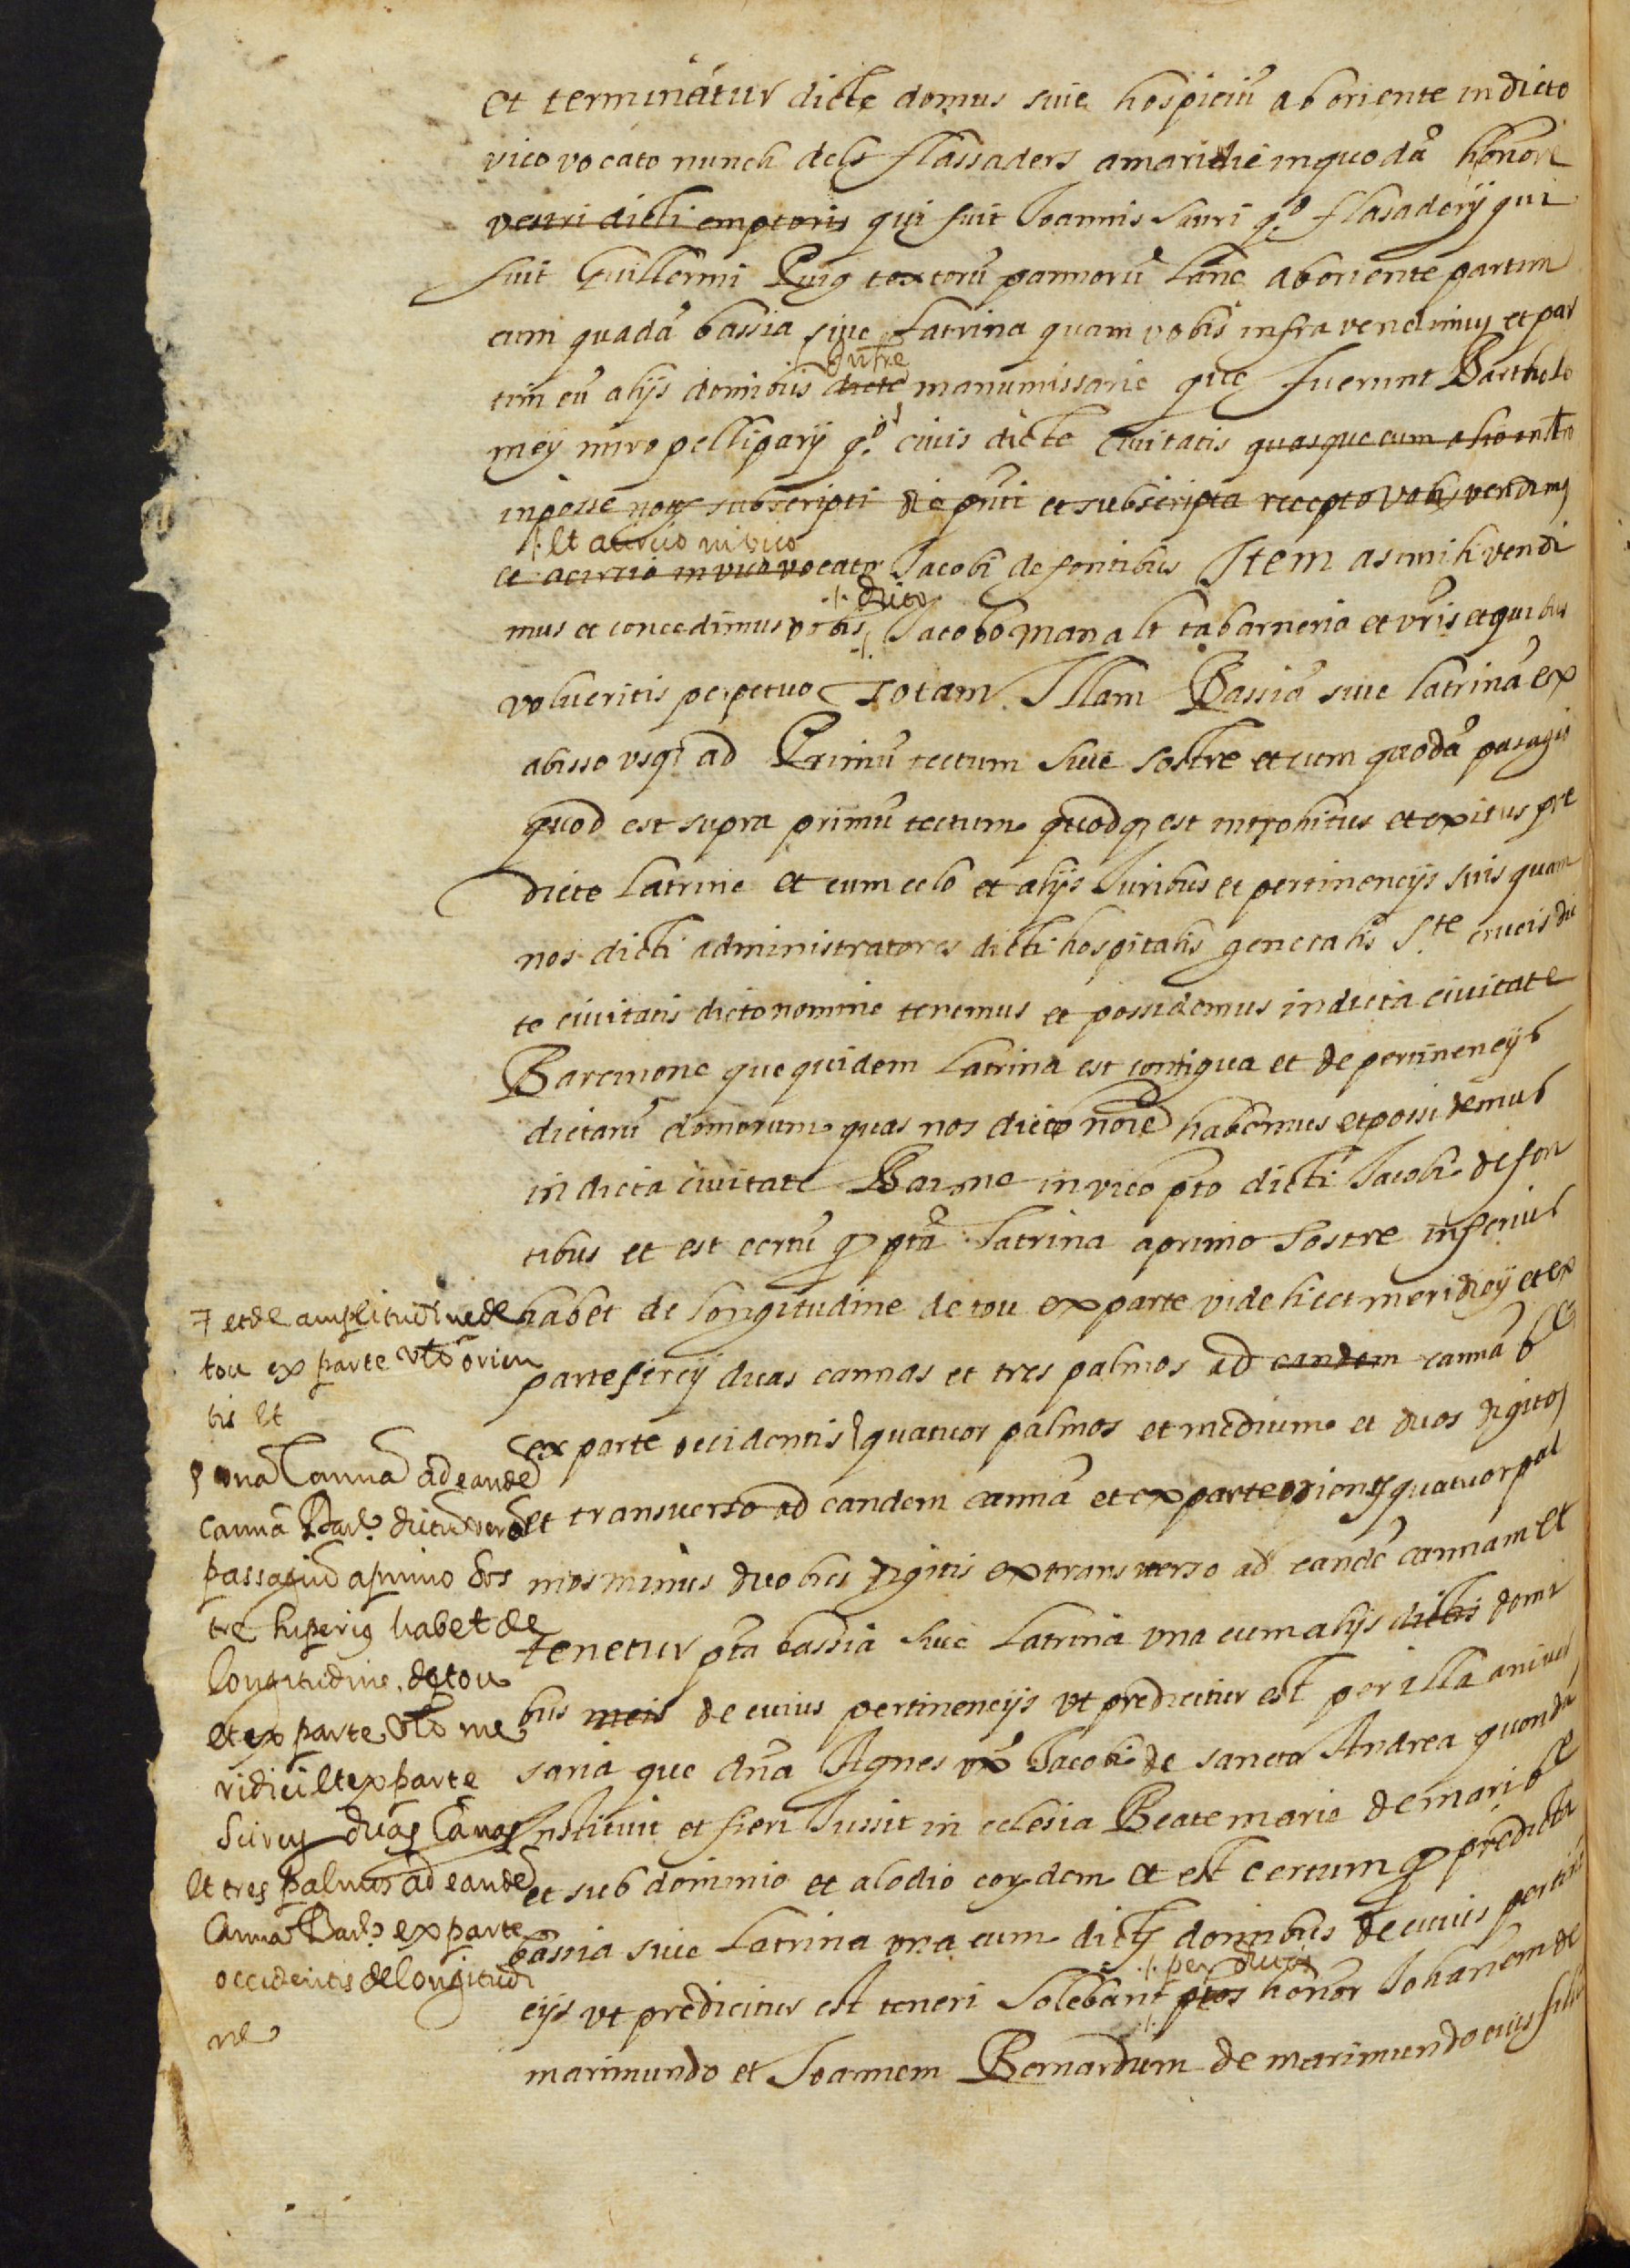 et terminātur dicte domus sive hospiciū ab oriente in dicto
vico vocato nunch dels flassaders a maridie in quodā honore
vestri dicti emptoris qui fuit Joannis Sauri q.º flasaderij qui
fuit Guillermi Puig textorū pannorū lane ab oriente partim
cum quadā bassia sive Latrina quam vobis infra vendimus et par
tim cū alijs domibus dicte manumissarie que fuerunt Bartholo
mey miro pellipary q.º civis dicte Civitatis quasque cum alio instro
in posse noty subscripti die pñti et subscripta recepto vobis vendimꝰ
./. Et a circio in vico
et a circio in vico vocato Jacobi de fontibus Item as mih vendi
./. dicto
mus et concedimus vobis ./. Jacobo manalt tabarnerio et vr̄is et quibus
volueritis perpetuo Totam Illam Bassiā sive latrinā ex
abisso usqꝫ ad Primū tectum sive sostre et cum quodā pasagio
quod est supra primū tectum quodqꝫ est introhitus et exitus pre
dicte latrine et cum celo et alijs Juribus et pertinencijs suis quam
nos dicti administratores dicti hospitalis generalis S.te crucis dic
te civitatis dicto nomine tenemus et possidemus in dicta civitate
Barcinone que quidem Latrina est contigua et de pertinencijs
dictarū domorum quas nos dicto noīe habemus et possidemus
in dicta civitate Barne in vico pto dicti Jacobi de fon
tibus et est certū ꝙ ptā latrina a primo sostre inferius
habet de longitudine de tou ex parte videlicet meridiey et ex
parte circij duas cannas et tres palmos ad eandem cannā
ex parte occidentis quatuor palmos et medium et duos digitos
et transverso ad eandem cannā et ex parte orientis quatuor pal
mos minus duobus digitis ex transverso ad eandē cannam et
Tenetur pta bassia sive Latrina una cum alijs dictis domi
bus meis de cuius pertinencijs ut predicitur est per illa anivel
saria que dña Agnes ux Jacobi de sancto Andrea quondā
Instituit et fieri Jussit in eclesia Beate marie de mari
et sub dominio et alodio eorundem et est certum ꝙ predicta
bassia sive Latrina una cum dictis domibus de cuius pertinē
./. per dictos
cijs ut predicitur est teneri solebant ptos honor Johanem de
marimundo et Joannem Bernardum de marimundo eius filiū
et de amplitudine de
tou ex parte vlꝫ orien
tis et
una Canna ad eandē
cannā Bar. dictū vero
passagiū a primo sos
tre superiꝰ habet de
longitudine de tou
et ex parte vlꝫ me
ridiei et ex parte
Circij duas Canas
Et tres palmos ad eandē
Cannā Bar. ex parte
occidentis de longitudi
ne